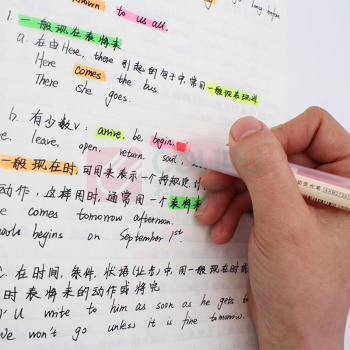 known to us all.
long before
1. 一般现在表将来
a. 在由Here, there 引起的句子中, 常用一般现在现
Here comes the bus.
There she goes.
b. 有少数v: arrive, be, begin,
e. leave, open, return, sail
一般现在时, 可用来表示一个按规定计
动作, 这样用时, 通常用一个表将来
e comes tomorrow afternoon.
ools begins on September 1st
c. 在时间, 条件, 状语(让步)中用一般现在时或
时表将来的动作或将完
U write to him as soon as he gets to
We won't go unless it is fine tomorrow.